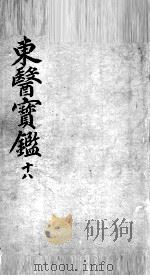 東醫寶鑑 十八
mtoou.info